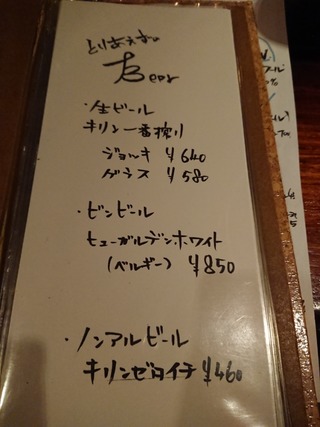 とりあえずの
Beer
・生ビール
キリン一番搾り
ジョッキ ¥640
グラス ¥580
・ビンビール
ヒューガルデンホワイト
(ベルギー) ¥850
・ノンアルビール
キリンゼロイチ ¥460